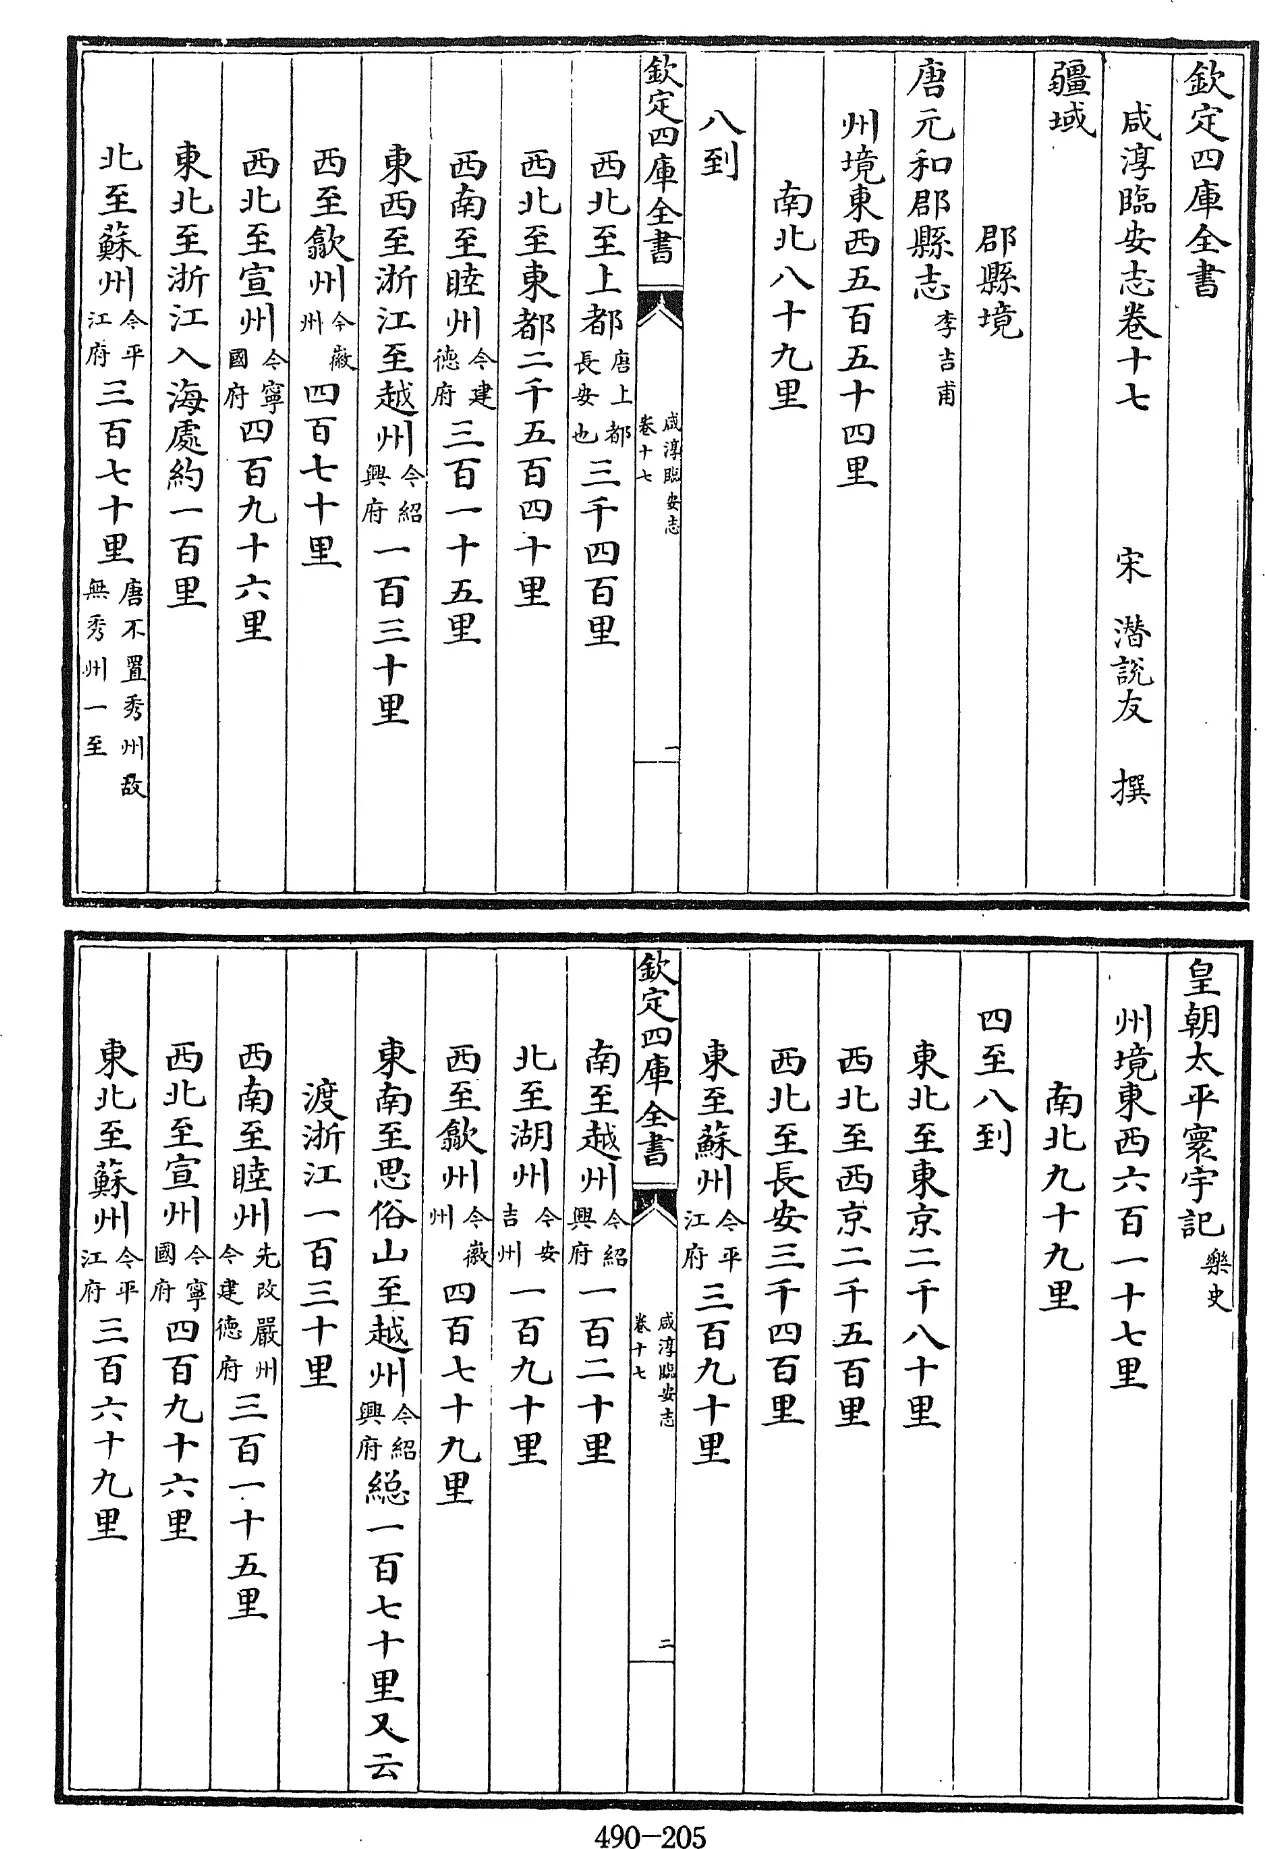 欽定四庫全書
咸淳臨安志卷十七 宋 潛說友 撰
疆域
郡縣境
唐元和郡縣志李吉甫
州境東西五百五十四里
南北八十九里
八到
欽定四庫全書 咸淳臨安志卷十七 一
西北至上都唐上都長安也三千四百里
西北至東都二千五百四十里
西南至睦州今建德府三百一十五里
東西至浙江至越州今紹興府一百三十里
西至歙州今徽州四百七十里
西北至宣州今寧國府四百九十六里
東北至浙江入海處約一百里
北至蘇州今平江府三百七十里唐不置秀州故無秀州一至
皇朝太平寰宇記樂史
州境東西六百一十七里
南北九十九里
四至八到
東北至東京二千八十里
西北至西京二千五百里
西北至長安三千四百里
東至蘇州今平江府三百九十里
欽定四庫全書 咸淳臨安志卷十七 二
南至越州今紹興府一百二十里
北至湖州今安吉州一百九十里
西至歙州今徽州四百七十九里
東南至思俗山至越州今紹興府總一百七十里又云
渡浙江一百三十里
西南至睦州先改嚴州今建德府三百一十五里
西北至宣州今寧國府四百九十六里
東北至蘇州今平江府三百六十九里
490-205